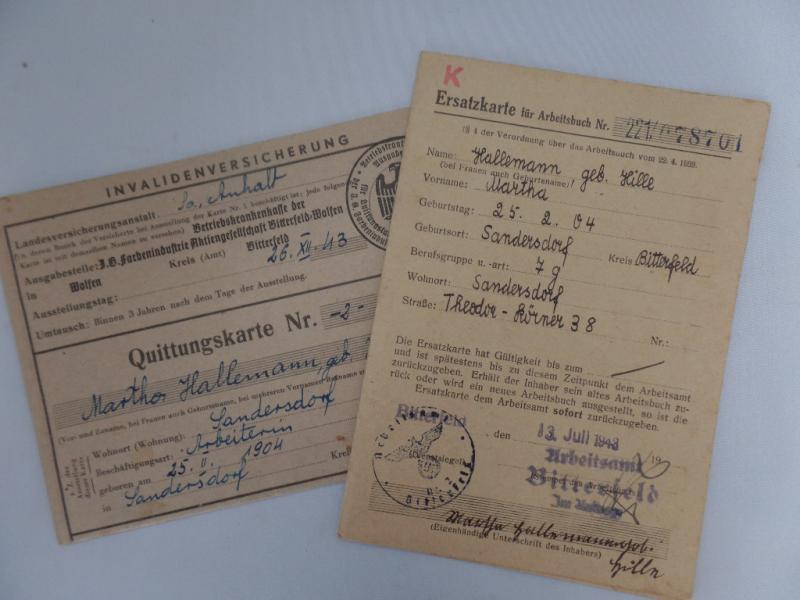 INVALIDENVERSICHERUNG
Landesversicherungsanstalt Sa, Anhalt
Karte ist mit demselben Namen zu versehen) Betriebskrankenkasse der
Ausgabestelle: J.G. Farbenindustrie Aktiengesellschaft Bitterfeld-Wolfen
in Wolfen Kreis (Amt) Bitterfeld
Ausstellungstag: 26. XII. 43
Umtausch: Binnen 3 Jahren nach dem Tage der Ausstellung.
Quittungskarte Nr. -2-
Martha Hallemann, geb.
Wohnort (Wohnung): Sandersdorf
Beschäftigungsart: Arbeiterin
geboren am 25. II. 1904
in Sandersdorf Kreis
K
Ersatzkarte für Arbeitsbuch Nr. 221/078701
(§ 4 der Verordnung über das Arbeitsbuch vom 22. 4. 1939.
Name: Hallemann geb. Hille
(bei Frauen auch Geburtsname)
Vorname: Martha
Geburtstag: 25. 2. 04
Geburtsort: Sandersdorf Kreis Bitterfeld
Berufsgruppe u. -art: 7 g
Wohnort: Sandersdorf
Straße: Theodor - Körner 38 Nr.:
Die Ersatzkarte hat Gültigkeit bis zum
und ist spätestens bis zu diesem Zeitpunkt dem Arbeitsamt
zurückzugeben. Erhält der Inhaber sein altes Arbeitsbuch zu-
rück oder wird ein neues Arbeitsbuch ausgestellt, so ist die
Ersatzkarte dem Arbeitsamt sofort zurückzugeben.
Bitterfeld den 13. Juli 1943 19
(Dienstsiegel) Arbeitsamt
Bitterfeld
Im Auftrage
Martha Hallemann geb.
(Eigenhändige Unterschrift des Inhabers) Hille